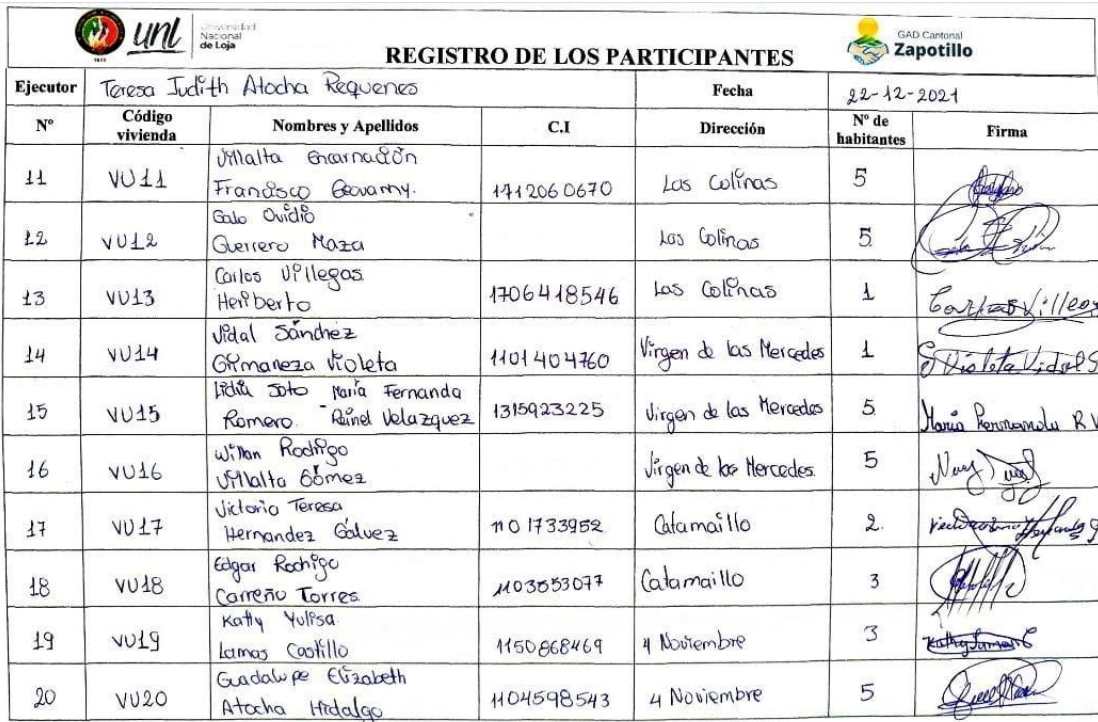 unl Universidad Nacional de Loja
1859
REGISTRO DE LOS PARTICIPANTES
GAD Cantonal Zapotillo
Ejecutor Teresa Judith Atocha Requenes Fecha 22-12-2021
N° Código vivienda Nombres y Apellidos C.I Dirección N° de habitantes Firma
11 VU11 Villalta Encarnación Francisco Geovanny. 1712060670 Las Colinas 5
12 VU12 Galo Ovidio Guerrero Maza Las Colinas 5
13 VU13 Carlos Villegas Heriberto 1706418546 Las Colinas 1
14 VU14 Vidal Sánchez Girmaneza Violeta 1101404760 Virgen de las Mercedes 1 Violeta Vidal S
15 VU15 Lidia Soto María Fernanda Romero. Reinel Velazquez 1315923225 Virgen de las Mercedes 5 María Fernanda R V
16 VU16 Wilman Rodrigo Villalta Gómez Virgen de las Mercedes. 5
17 VU17 Victoria Teresa Hernandez Gálvez 1101733952 Catamaillo 2.
18 VU18 Edgar Rodrigo Carreño Torres 1103553077 Catamaillo 3
19 VU19 Kathy Yulisa Lamas Castillo 1150868469 4 Noviembre 3
20 VU20 Guadalupe Elizabeth Atocha Hidalgo 1104598543 4 Noviembre 5